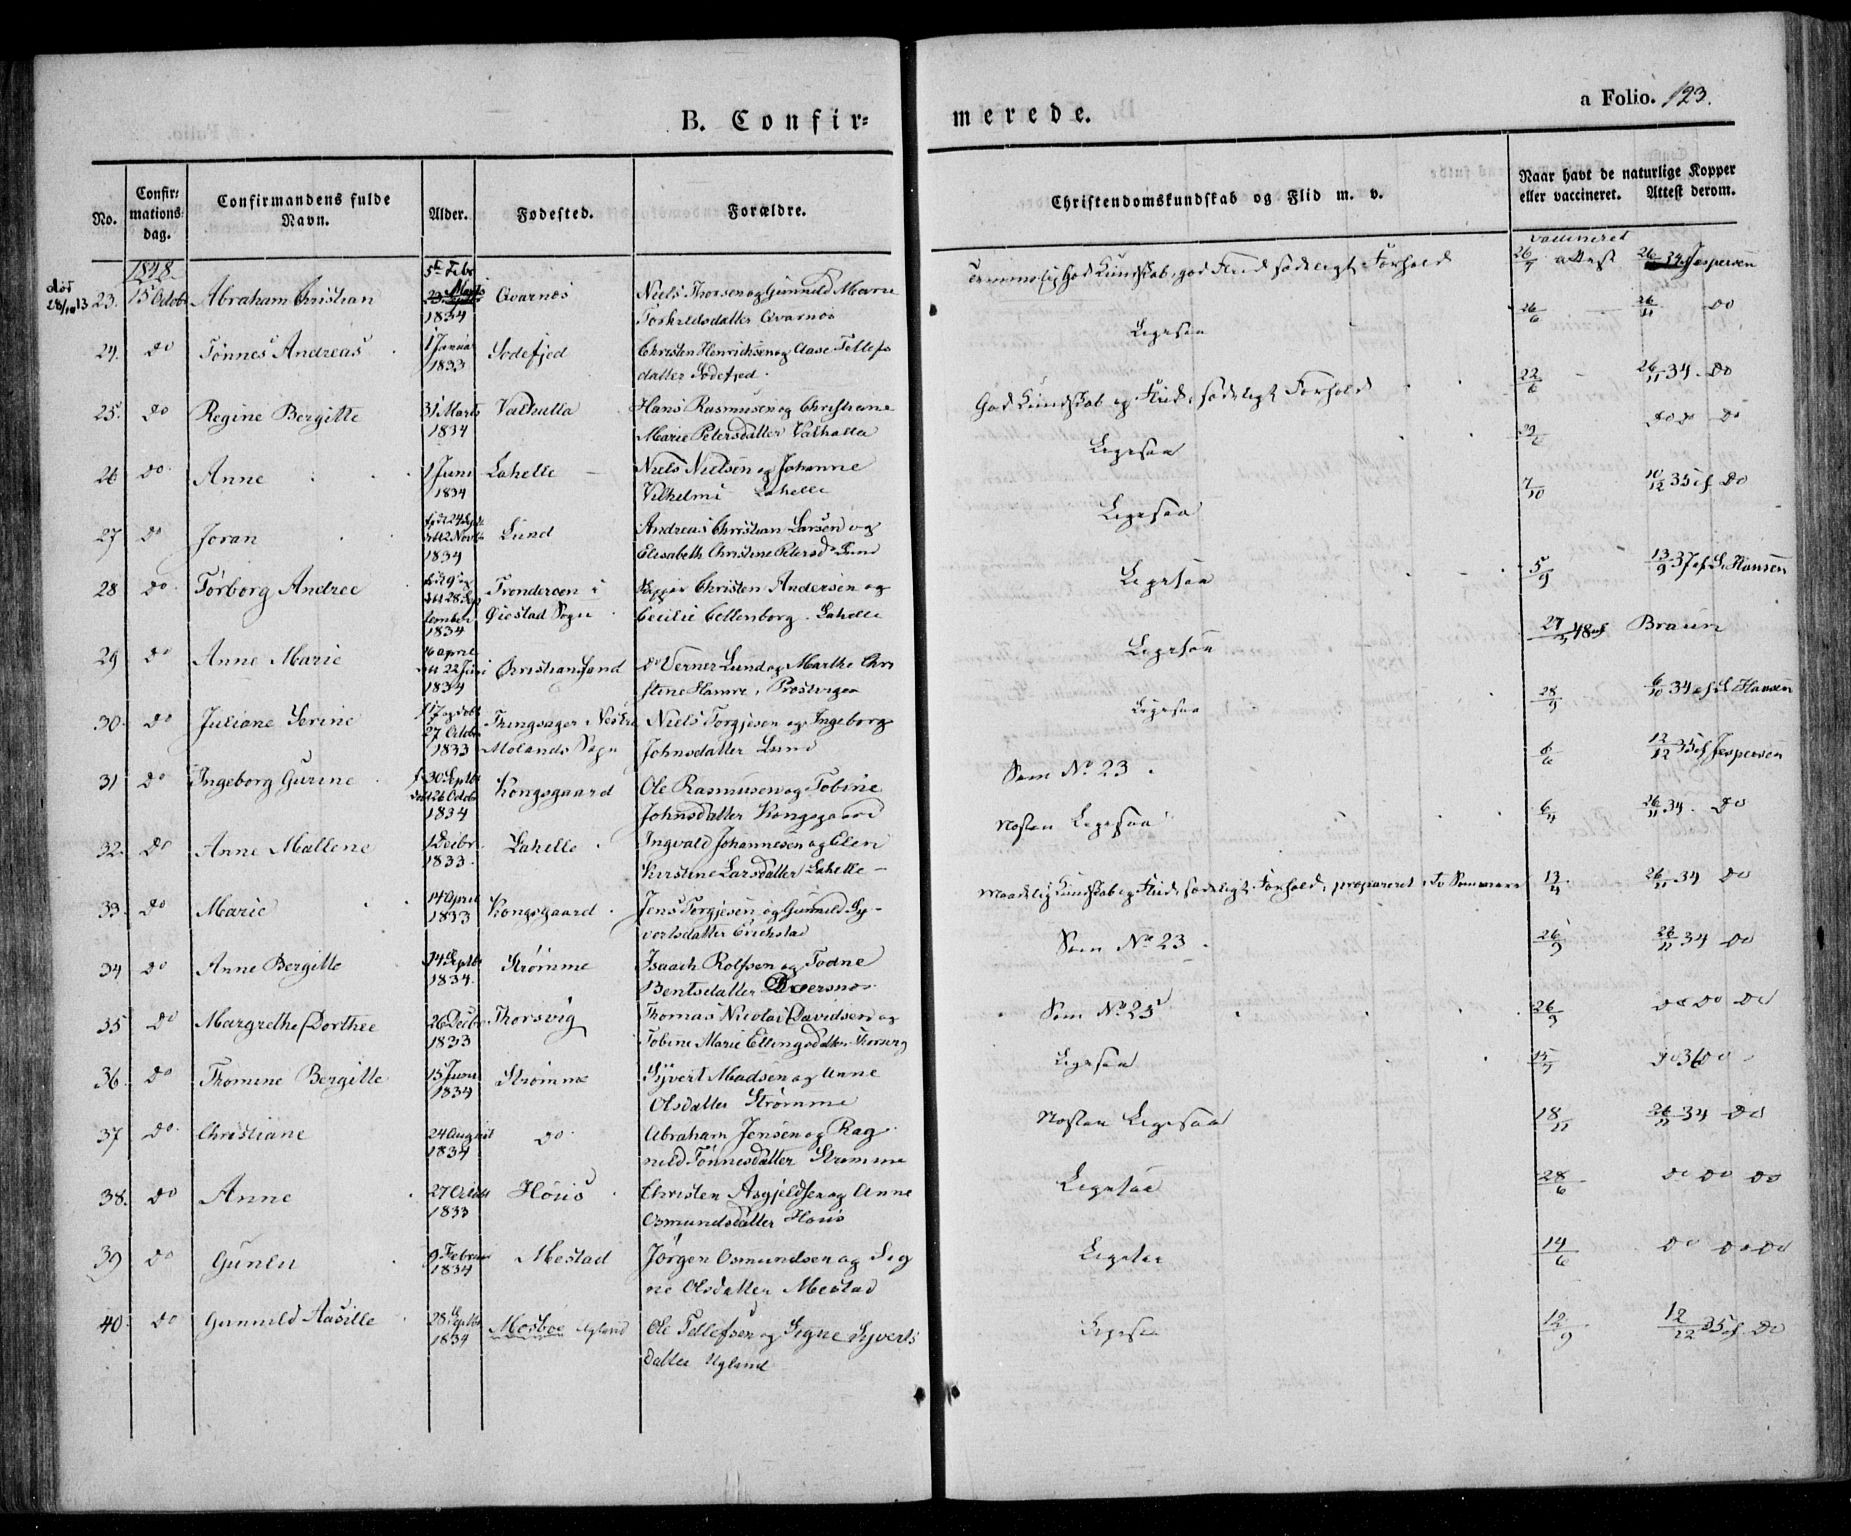 a Folio. 123.
B. Confir- merede.
No. Confir-mations-dag. Confirmandens fulde Navn. Alder. Fødested. Forældre. Christendomskundskab og Flid m. v. Naar havt de naturlige Kopper eller vaccineret. Attest derom.
1848. 5te Febr vaccineret
død 28/10 13
23. 15 Octobr Abraham Christian Marts 1834 Qvarnes Niels Thorsen og Gunneld Marie god Kundskab, god Flid sædeligt Forhold 26/7 attest 26/11 34 Jespersen
Torkildsdatter Qvarnes
24. do Tønnes Andreas 1 Januar 1833 Sodefjed Christen Henrichsen og Aase Tellefs Ligesaa 26/6 26/11 Do
datter Sodefjed.
25. do Regine Bergitte 31 Marts 1834 Valhalla Hans Rasmusen og Christiane God Kundskab og Flid, sædeligt Forhold 22/6 26/11 34. Do
Marie Petersdatter Valhalla
26 do Anne 1 Juni 1834 Lahelle Niels Nielsen og Johanne Ligesaa do do Do
Vilhelmi Lahelle
27 do Joran født 24 Septr 2 Novbr 1834 Lund Andreas Christian Larsen og Ligesaa 7/10 10/12 35 af Do
Elisabeth Christine Petersd Lund
28 do Torborg Andree 28 September 1834 Tronderoen i Øiestad Sogn Christen Andersen og Ligesaa 5/9 13/9 37 af L. Hansen
Cecilie Cellenborg. Lahelle
29 do Anne Marie 16 april 22 Juni 1834 Christiansand do Verner Lund og Marthe Chri Ligesaa 27/9 48 af Braun
stine Hamre, Prostvigen
30. do Juliane Serine 27 Octbr 1833 Thingsager Molands Sogn Niels Torgjesen og Ingeborg Ligesaa 28/9 6/10 34 af L Hansen
Johnsdatter Lund
31 do Ingeborg Gurine 30 Septbr 26 Octobr 1834 Kongsgaard Ole Rasmusen og Tobine Som No 23. 6/6 12/12 35 af Jespersen
Johnsdatter Kongsgaard
32. do Anne Mallene 1 Decbr. 1833. Lahelle Ingvald Johannesen og Elen Næsten Ligesaa 6/4 26/11 34. Do
Kirstine Larsdatter Lahelle
33. do Marie 14 April 1833 Kongsgaard. Jens Torgjesen og Gunneld Sy- Maadelig Kundskab og Flid, sædeligt Forhold, præpareret i to Sommere 13/4 26/11 34 Do
vertsdatter Eickstad
34 do Anne Bergitte 14 Septbr 1834. Strømme Isaach Rolfsen og Todne Som No 23. 26/9 26/11 34 Do
Bentsdatter Dversnes
35 do Margrethe Dorthee 26 Decbr 1833 Thorsvig Thomas Nicolai Davidsen og Som No 25 26/9 do do do
Tobine Marie Ellingsdatter Thorsvig
36. do Thomine Bergitte 15 Juni 1834 Strømme Syvert Madsen og Anne Ligesaa do 36 do
Olsdatter Strømme
37 do Christiane 24 August 1834 do Abraham Jensen og Rag Næsten Ligesaa 18/11 26/11 34 Do
nild Tønnesdatter Strømme
38. do Anne 27 Octobr 1833 Høus Christen Asgjeldsen og Anne Ligesaa 28/6 do do do
Osmundsdatter Høus
39 do Gunlu 9 Februar 1834 Mestad Jørgen Osmundsen og Sig Ligesaa 14/6 do do do
ne Olsdatter Mestad
40. do Gunnild Aasille 28 Septbr 1834 Mosboe Uglund Ole Tellefsen og Signe Syverts Ligesaa 12/9 12/12 35 af Do
datter Uglund